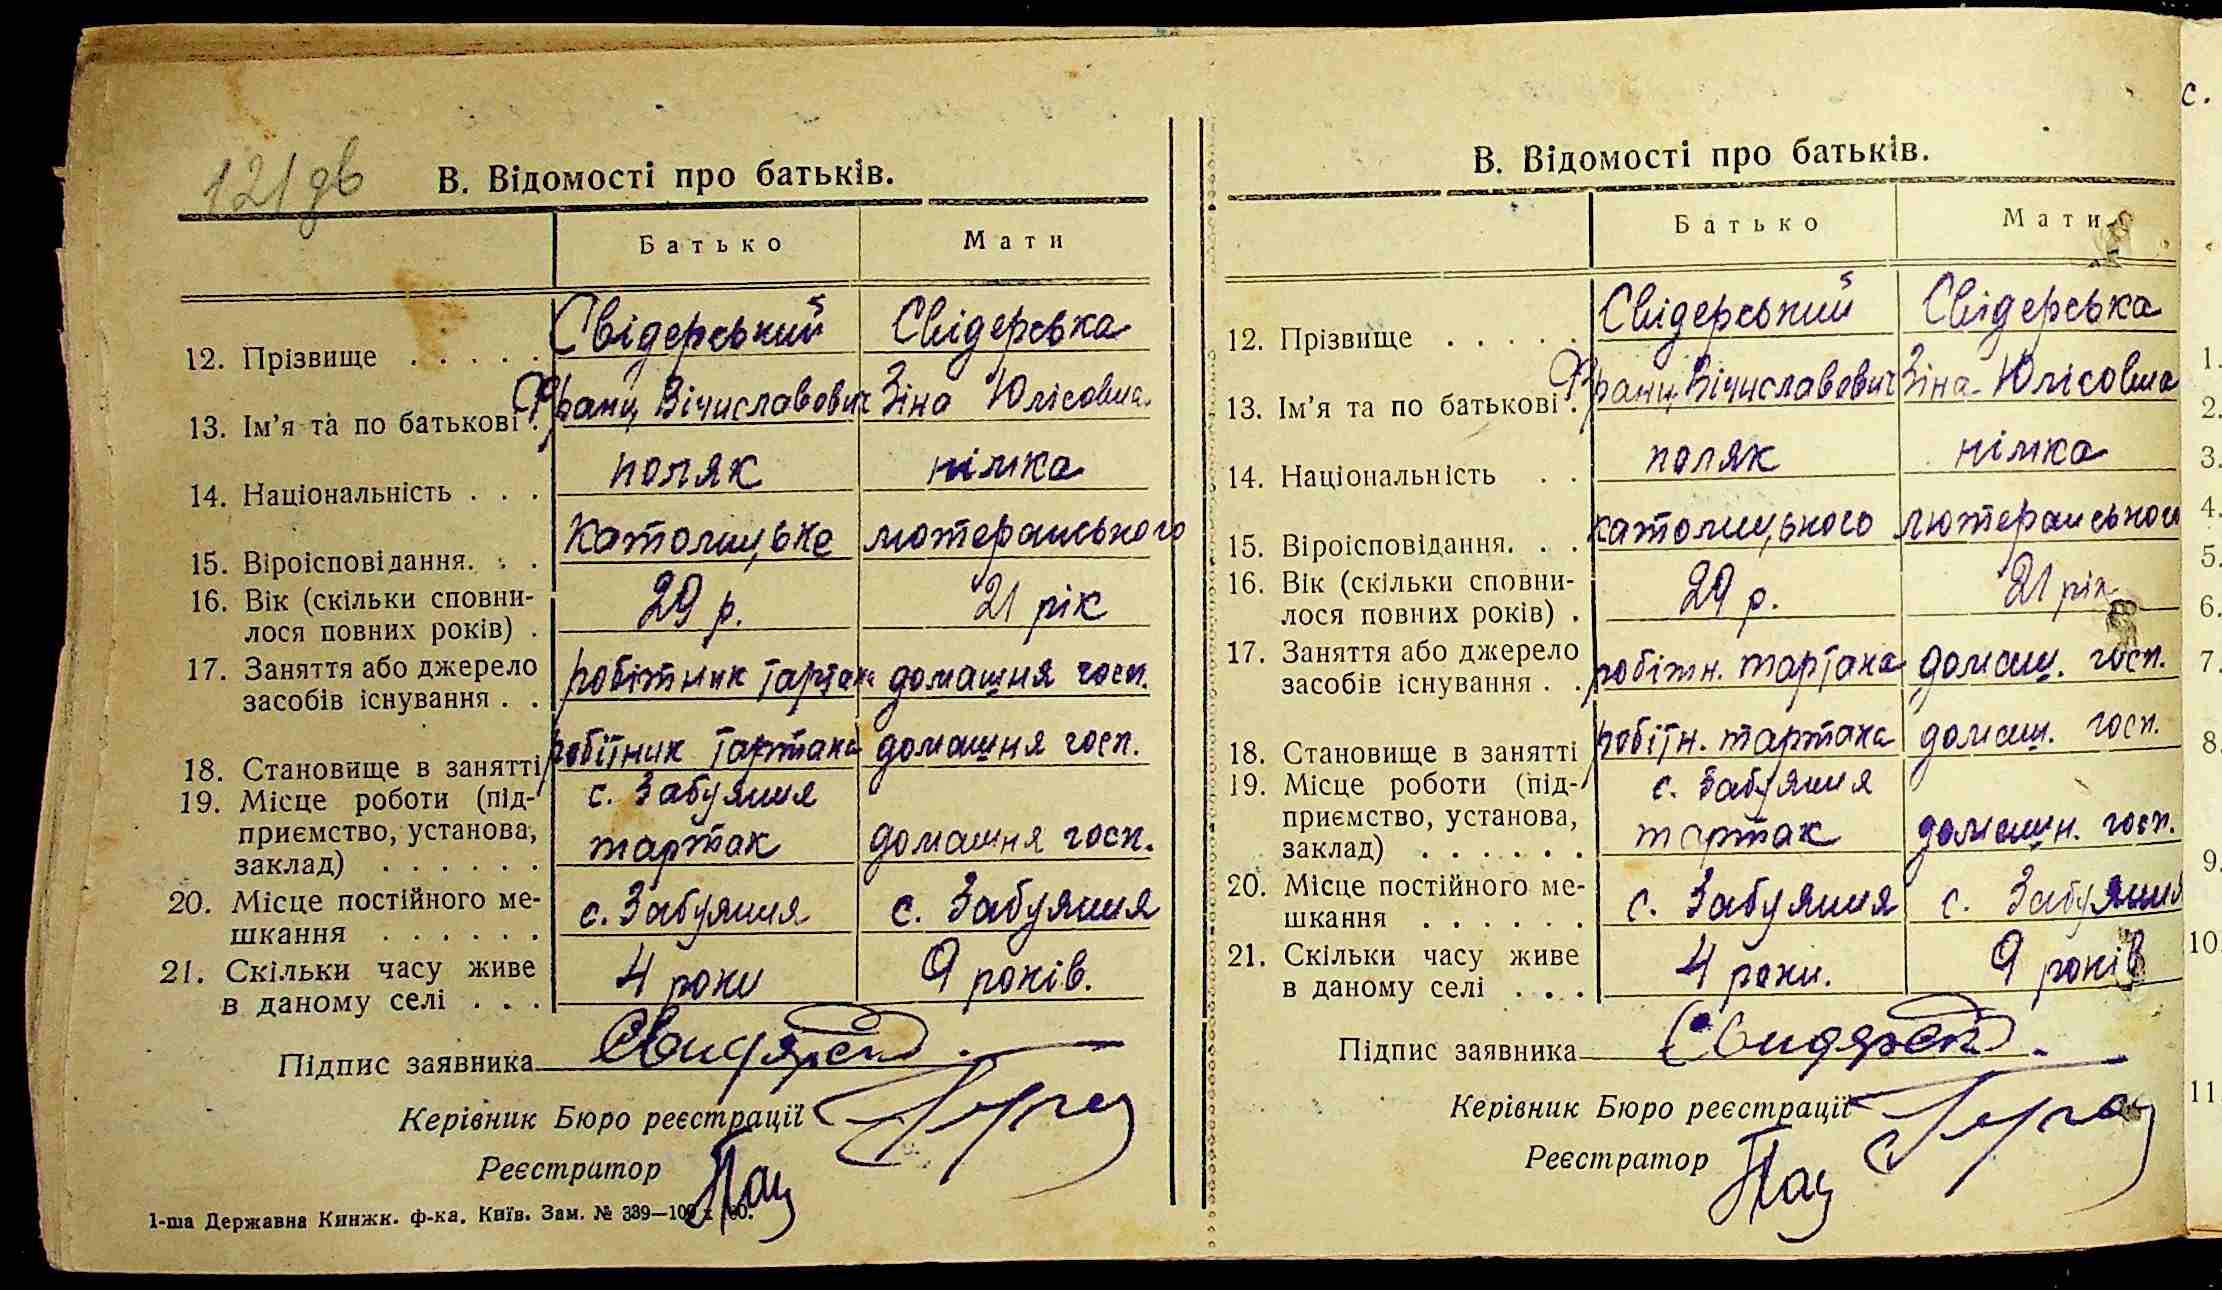 121 дв
В. Відомості про батьків.
Батько Мати
12. Прізвище . . . . . Свідерський Свідерська
13. Ім'я та по батькові . Франц Вічиславович Зіна Юлісовна
14. Національність . . . поляк німка
15. Віроісповідання. . . католицьке лютеранського
16. Вік (скільки сповни-
лося повних років) . 29 р. 21 рік
17. Заняття або джерело
засобів існування . . робітник тартака домашня госп.
18. Становище в занятті робітник тартака домашня госп.
19. Місце роботи (під- с. Забуяння
приємство, установа,
заклад) . . . . . . тартак домашня госп.
20. Місце постійного ме-
шкання . . . . . . с. Забуяння с. Забуяння
21. Скільки часу живе
в даному селі . . . 4 роки 9 років.
Підпис заявника
Керівник Бюро реєстрації
Реєстратор
1-ша Державна Книжк. ф-ка. Київ. Зам. № 339—100
В. Відомості про батьків.
Батько Мати
12. Прізвище . . . . . Свідерський Свідерська
13. Ім'я та по батькові . Франц Вічиславович Зіна Юлісовна
14. Національність . . поляк німка
15. Віроісповідання. . . католицького лютеранського
16. Вік (скільки сповни-
лося повних років) . 29 р. 21 рік
17. Заняття або джерело
засобів існування . . робітн. тартака домашн. госп.
18. Становище в занятті робітн. тартака домашн. госп.
19. Місце роботи (під- с. Забуяння
приємство, установа,
заклад) . . . . . . тартак домашн. госп.
20. Місце постійного ме-
шкання . . . . . . с. Забуяння с. Забуяння
21. Скільки часу живе
в даному селі . . . 4 роки. 9 років
Підпис заявника
Керівник Бюро реєстрації
Реєстратор
с.
1.
2.
3.
4.
5.
6.
7.
8.
9.
10.
11.